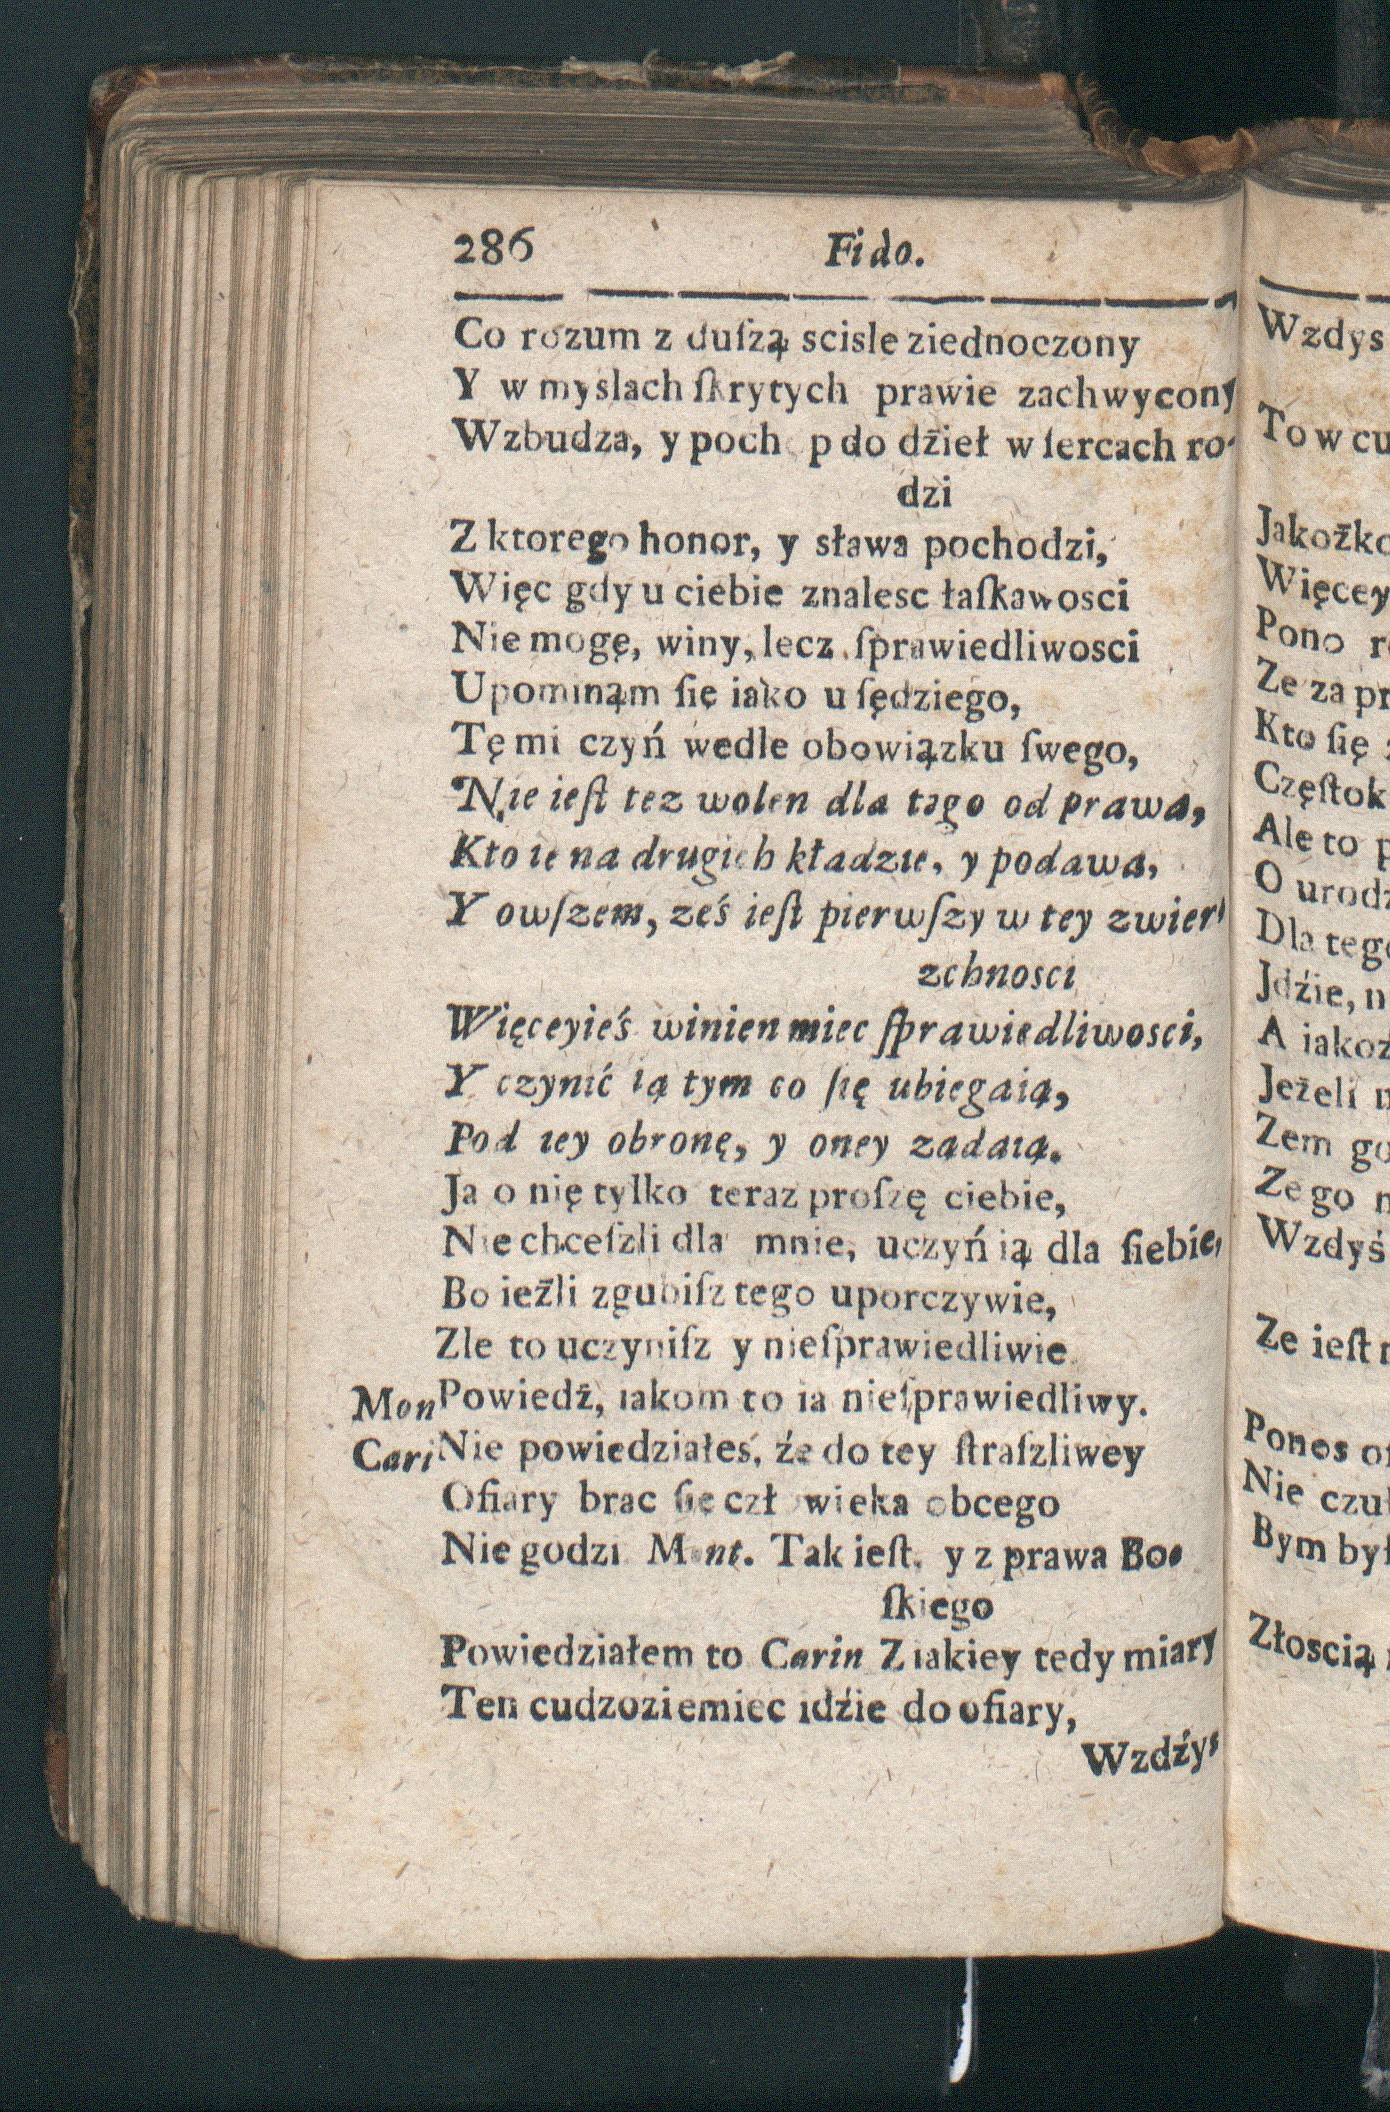 286 Fido.
Co rozum z duſzą scisle ziednoczony
Y w myslach ſkrytych prawie zachwycony
Wzbudza, y poch p do dźieł w ſercach ro-
dzi
Z ktorego honor, y sława pochodzi,
Więc gdy u ciebie znalesc łaſkawosci
Nie mogę, winy, lecz ſprawiedliwosci
Upominąm ſię iako u ſędziego,
Tę mi czyń wedle obowiązku ſwego,
Nie ieſt tez wolen dla tego od prawa,
Kto ie na drugich kładzie, y podawa,
Y owſzem, ześ ieſt pierwſzy w tey zwier-
zchnosci
Więceyieś winien miec ſprawiedliwosci,
Y czynić ią tym co ſię ubiegaią,
Pod iey obronę, y oney ządaią.
Ja o nię tylko teraz proſzę ciebie,
Nie chceſzli dla mnie, uczyń ią dla ſiebie,
Bo ieźli zgubiſz tego uporczywie,
Zle to uczyniſz y nieſprawiedliwie
Mon Powiedź, iakom to ia nieſprawiedliwy.
Cari Nie powiedziałeś, źe do tey ſtraſzliwey
Ofiary brac ſię człowieka obcego
Nie godzi Mont. Tak ieſt, y z prawa Bo-
ſkiego
Powiedziałem to Carin Z iakiey tedy miary
Ten cudzoziemiec idźie do ofiary,
Wzdźys
Wzdys
To w cu
Jakoźko
Więcey
Pono r
Ze za pr
Kto ſię
Częſtok
Ale to p
O urodz
Dla tego
Jdźie, n
A iakoz
Jeżeli n
Zem go
Ze go n
Wzdyś
Ze ieſt n
Ponos of
Nie czuł
Bym był
Złoscią